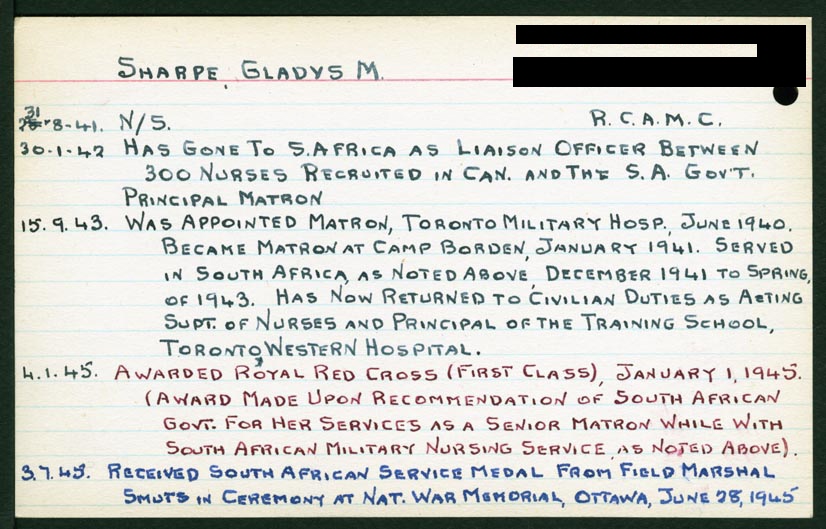 SHARPE, GLADYS M.
31-8-41. N/S. R.C.A.M.C.
30-1-42 HAS GONE TO S. AFRICA AS LIAISON OFFICER BETWEEN
300 NURSES RECRUITED IN CAN. AND THE S.A. GOV'T.
PRINCIPAL MATRON
15.9.43. WAS APPOINTED MATRON, TORONTO MILITARY HOSP., JUNE 1940.
BECAME MATRON AT CAMP BORDEN, JANUARY 1941. SERVED
IN SOUTH AFRICA, AS NOTED ABOVE, DECEMBER 1941 TO SPRING,
OF 1943. HAS NOW RETURNED TO CIVILIAN DUTIES AS ACTING
SUPT. OF NURSES AND PRINCIPAL OF THE TRAINING SCHOOL,
TORONTO WESTERN HOSPITAL.
4.1.45. AWARDED ROYAL RED CROSS (FIRST CLASS), JANUARY 1, 1945.
(AWARD MADE UPON RECOMMENDATION OF SOUTH AFRICAN
GOVT. FOR HER SERVICES AS A SENIOR MATRON WHILE WITH
SOUTH AFRICAN MILITARY NURSING SERVICE, AS NOTED ABOVE).
3.7.45. RECEIVED SOUTH AFRICAN SERVICE MEDAL FROM FIELD MARSHAL
SMUTS IN CEREMONY AT NAT. WAR MEMORIAL, OTTAWA, JUNE 28, 1945